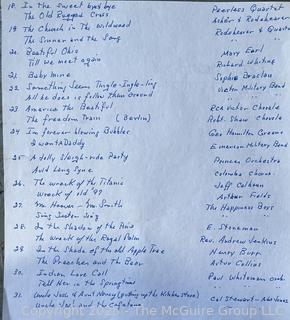 18. In the sweet bye & bye Peerless Quartet
The Old Rugged Cross Asher & Rodeheaver
19. The Church in the Wildwood Rodeheaver & Quartet
The Sinner and the Song " "
20. Beatiful Ohio Mary Earl
Till We meet again Richard Whiting
21. Baby mine Sophie Braslau
22. Something Seems Tingle-Ingle-ing Victor Military Band
All he does is follow them around " "
23. America the Beatiful RCA Victor Chorale
The freedom Train (Berlin) Robt. Shaw Chorale
24. Im forever blowing Bubbles Geo Hamilton Greene
I want a Daddy Emerson Military Band
25. A Jolly Sleigh-ride Party Princes Orchestra
Auld Lang Syne Columbia Chorus
26. The wreck of the Titanic Jeff Calhoun
Wreck of old '97 Arthur Fields
27. Mr Hoover - Mr Smith The Happiness Boys
Sing Sister Sing
28. In the Shadow of the Pine E. Stoneman
The Wreck of the Royal Palm Rev. Andrew Jenkins
29. In the Shade of the old Apple Tree Henry Burr
The Preacher and the Bear Artur Collins
30. Indian Love Call Paul Whiteman orch.
Tell Her in the Springtime " "
31. Uncle Josh & Aunt Nancy (putting up the Kitchen stove) Cal Stewart - Ada Jones
Uncle Josh and the